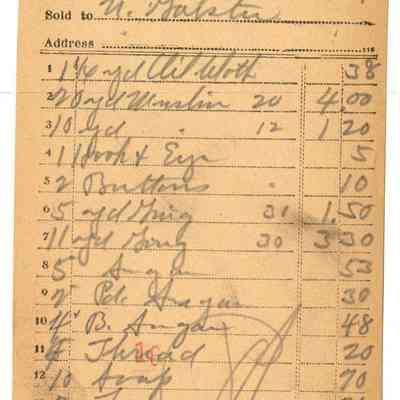 Sold to N. Galster
Address
1 1 1/6 yd Oil Cloth 38
2 20 yd Muslin 20 4.00
3 10 yd " 12 1 20
4 1 Hook & Eye 5
5 2 Buttons 10
6 5 yd 31 1.50
7 11 yd 30 3 30
8 5 Sugar 53
9 2 Pdr Sugar 30
10 4 B. Sugar 48
11 4 Thread 20
12 10 Soap 70